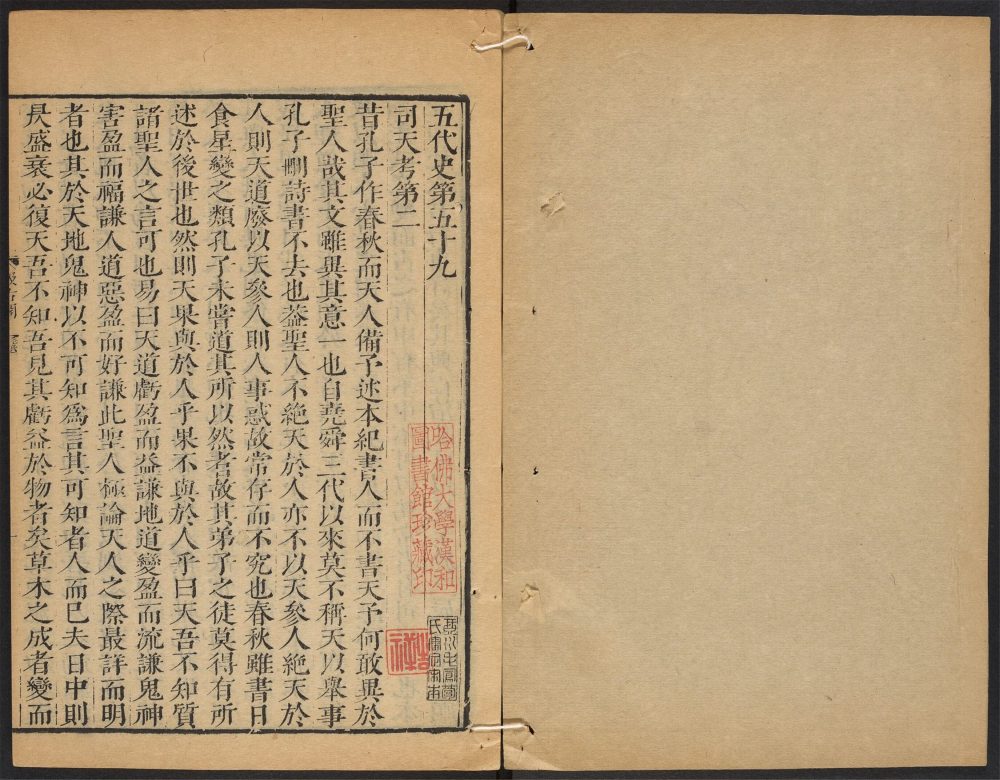 五代史第五十九
司天考第二
昔孔子作春秋而天人備予述本紀書人而不書天予何敢異於
聖人哉其文雖異其意一也自堯舜三代以來莫不稱天以舉事
孔子刪詩書不去也葢聖人不絕天於人亦不以天參人絕天於
人則天道廢以天參人則人事惑故常存而不究也春秋雖書日
食星變之類孔子未嘗道其所以然者故其弟子之徒莫得有所
述於後世也然則天果與於人乎果不與於人乎曰天吾不知質
諸聖人之言可也易曰天道虧盈而益謙地道變盈而流謙鬼神
害盈而福謙人道惡盈而好謙此聖人極論天人之際最詳而明
者也其於天地鬼神以不可知為言其可知者人而已夫日中則
昃盛衰必復天吾不知吾見其虧益於物者矣草木之成者變而
哈佛大學漢和
圖書館珍藏印